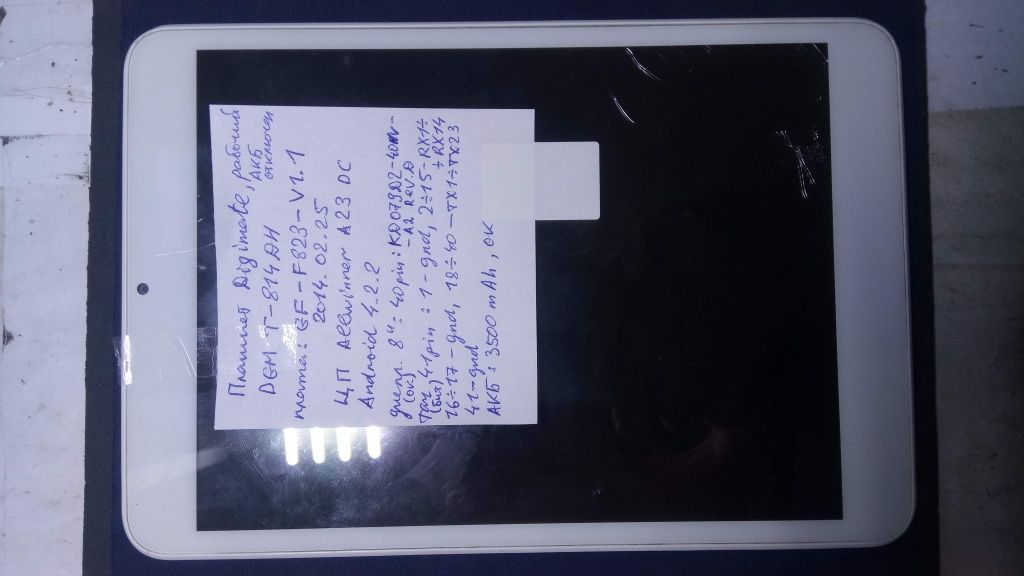 Планшет Digimate, рабочий
АКБ
отключен
DGM T-814ДН
плата: GF-F823-V1.1
2014.02.25
ЦП Allwinner A23 DC
Android 4.2.2
диспл. 8": 40pin: KD079D2-40NV-
(ок) -A2 REV.A
тач 41pin: 1-gnd, 2÷15-RX1÷
(бия) ÷RX14
16÷17-gnd, 18÷40-TX1÷TX23
41-gnd
АКБ: 3500 mAh, ОК